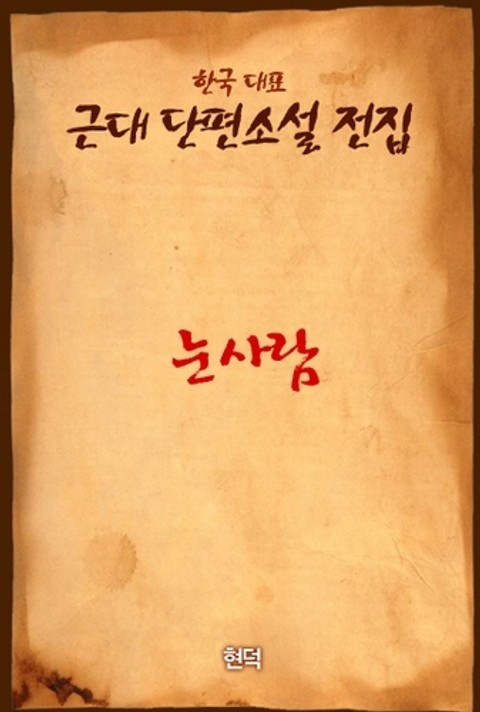 한국 대표
근대 단편소설 전집
눈사람
현덕